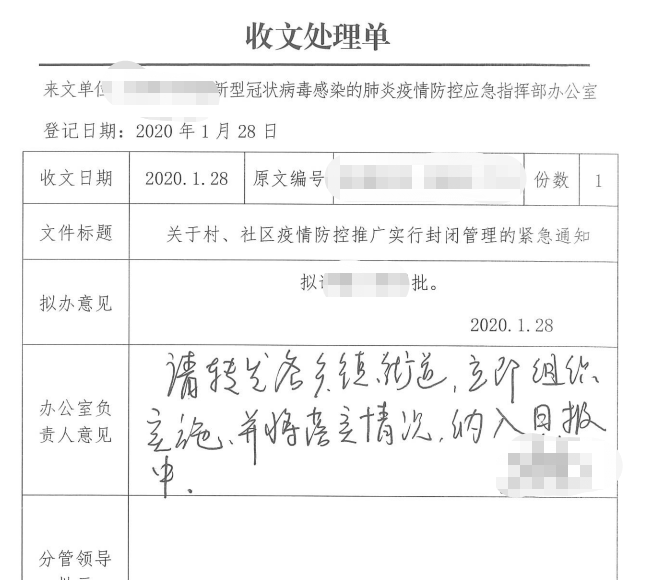 收文处理单
来文单位 新型冠状病毒感染的肺炎疫情防控应急指挥部办公室
登记日期：2020 年 1 月 28 日
收文日期 2020.1.28 原文编号 份数 1
文件标题 关于村、社区疫情防控推广实行封闭管理的紧急通知
拟办意见 拟 批。
2020.1.28
办公室负责人意见
请转发各乡镇、街道，立即组织
实施、并将落实情况，纳入日报
中.
分管领导